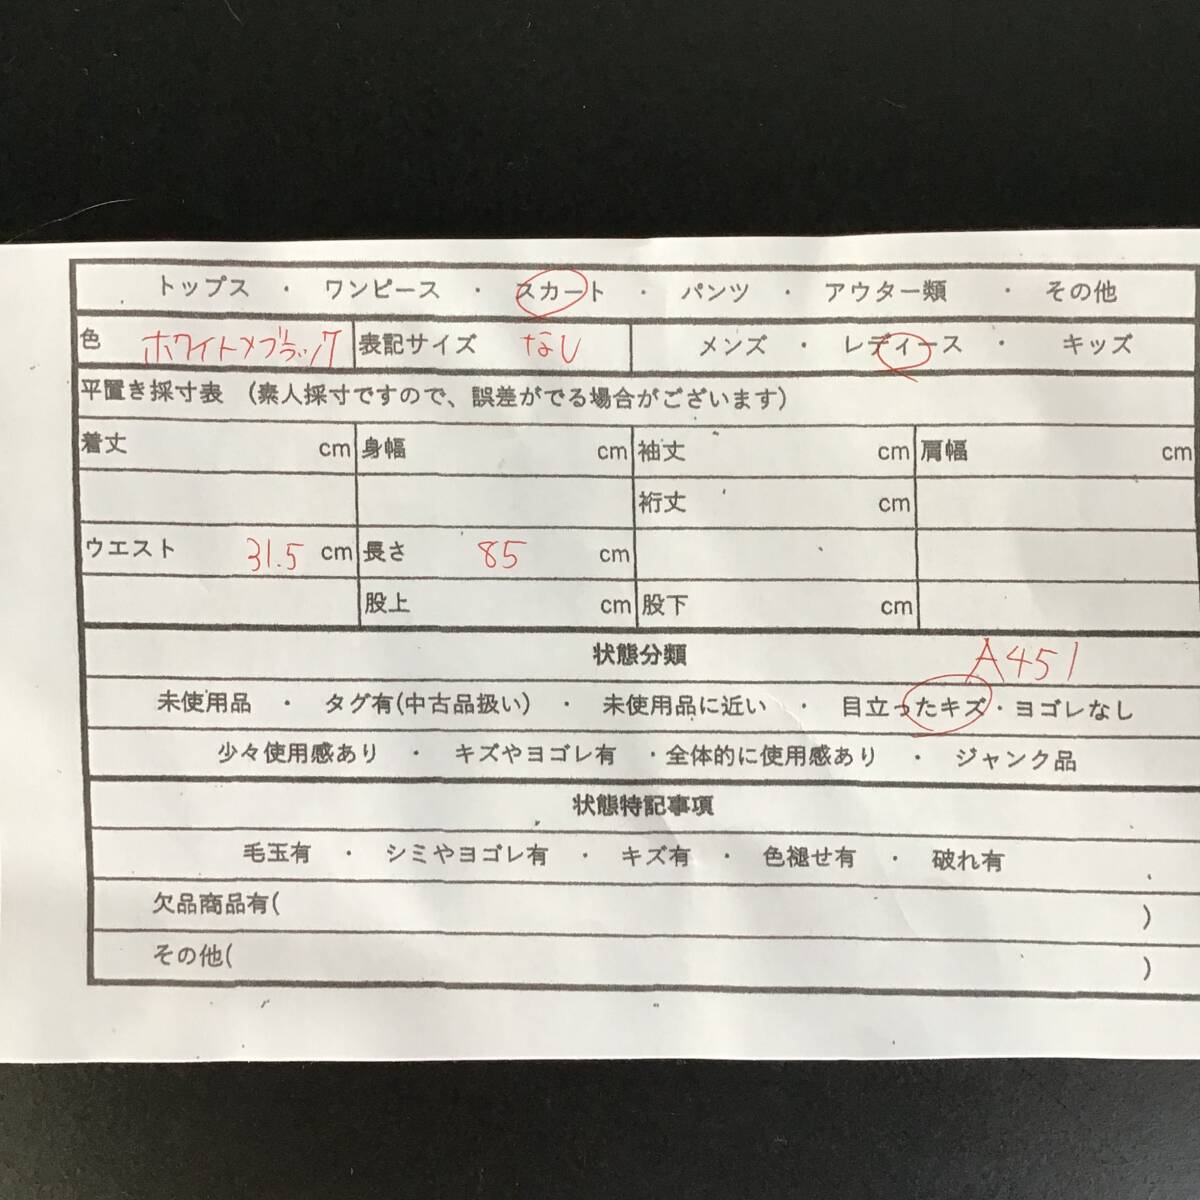 トップス ・ ワンピース ・ スカート ・ パンツ ・ アウター類 ・ その他
色 ホワイト×ブラック 表記サイズ なし メンズ ・ レディース ・ キッズ
平置き採寸表 (素人採寸ですので、誤差がでる場合がございます)
着丈 cm 身幅 cm 袖丈 cm 肩幅 cm
裄丈 cm
ウエスト 31.5 cm 長さ 85 cm
股上 cm 股下 cm
状態分類 A451
未使用品 ・ タグ有(中古品扱い) ・ 未使用品に近い ・ 目立ったキズ・ヨゴレなし
少々使用感あり ・ キズやヨゴレ有 ・全体的に使用感あり ・ ジャンク品
状態特記事項
毛玉有 ・ シミやヨゴレ有 ・ キズ有 ・ 色褪せ有 ・ 破れ有
欠品商品有( )
その他( )